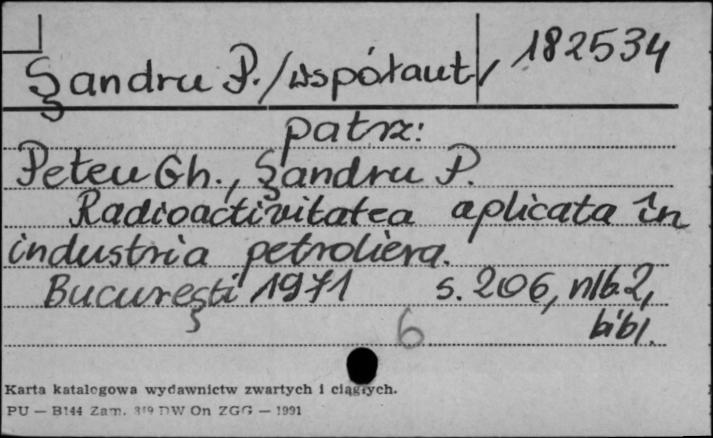 Șandru P./współaut/, 182534
patrz:
Peteu Gh., Șandru P.
Radioactivitatea aplicata în
industria petroliera.
București 1971 s. 206, nlb. 2,
bibl.
6
Karta katalogowa wydawnictw zwartych i ciągłych.
PU — B144 Zam. 319 DW On ZGG — 1991